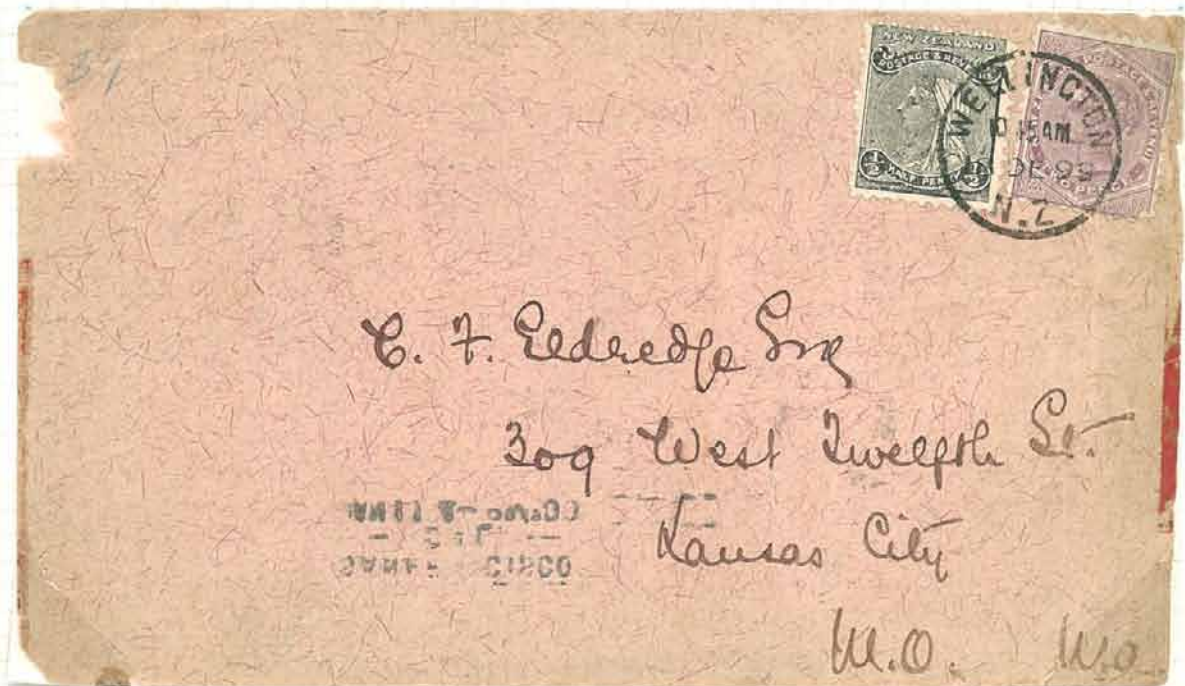 NEW ZEALAND
POSTAGE & REVENUE
½ HALF PENNY ½
WELLINGTON
DE 99
N.Z
C. F. Eldredge Esq
309 West Twelfth St.
Kansas City
M.O. M.O